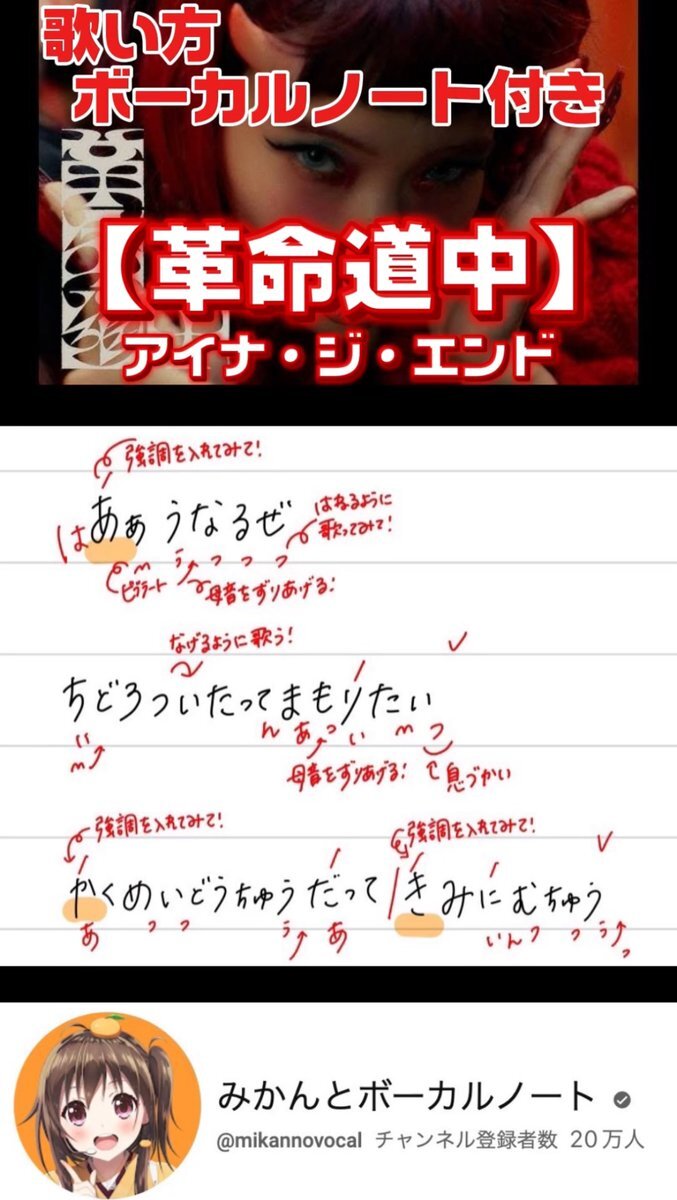 歌い方
ボーカルノート付き
【革命道中】
アイナ・ジ・エンド
強調を入れてみて!
はねるように
歌ってみて!
は
あぁ うなるぜ
m う っ っ っ
ビブラート
母音をずりあげる!
なげるように歌う!
ちどろついたってまもりたい
い ん あ っ い m っ
m
母音をずりあげる!
息づかい
強調を入れてみて! 強調を入れてみて!
かくめいどうちゅうだって きみにむちゅう
あ っ っ う あ いんっ っ う
っ
みかんとボーカルノート
@mikannovocal チャンネル登録者数 20万人